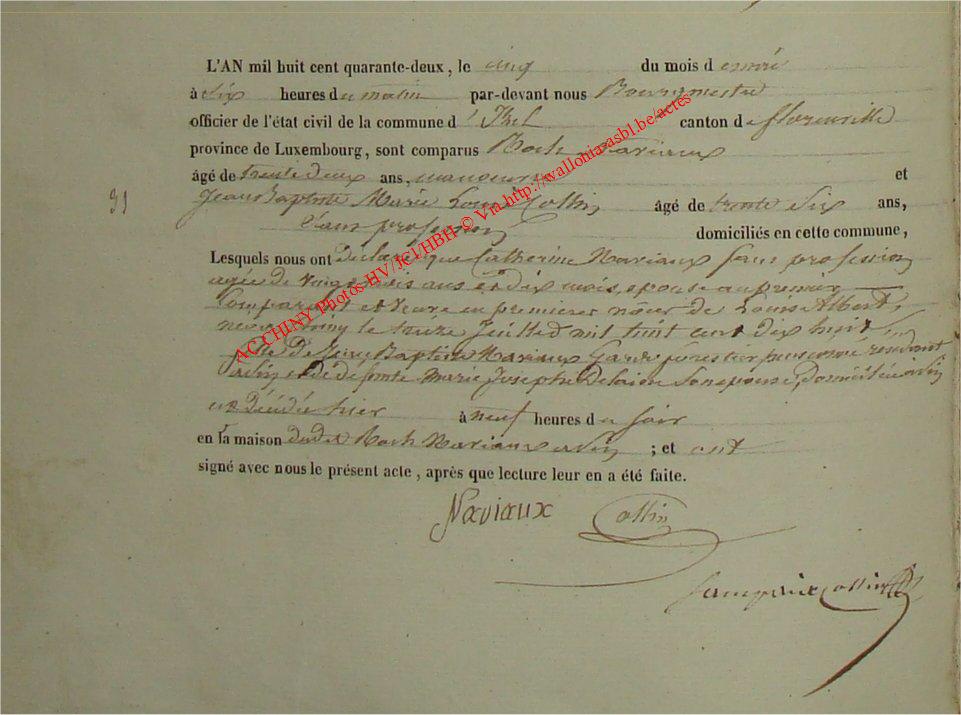 L'AN mil huit cent quarante-deux, le cinq du mois d e mai
à dix heures du matin par-devant nous Bourgmestre
officier de l'état civil de la commune d'Izel canton de florenville
province de Luxembourg, sont comparus Roch Naviaux
31
âgé de trente deux ans, manoeuvre et
Jean Baptiste Marie Louis Collin âgé de trente six ans,
Sans profession domiciliés en cette commune,
Lesquels nous ont déclaré que Catherine Naviaux Sans profession
agée de vingt trois ans et dix mois, epouse au premier
Comparant et veuve en premieres nôces de Louis Albert,
née le treize Juillet mil huit cent dix huit
fille de Jean Baptiste Naviaux Garde forestier
et de défunte Marie Josephe Son epouse, domiciliée
est décédée hier à neuf heures du soir
en la maison dudit Roch Naviaux ; et ont
signé avec nous le présent acte, après que lecture leur en a été faite.
Naviaux Collin
Collin
AC CHINY Photos HV/JCI/HBH © Via http://wallonia-asbl.be/actes